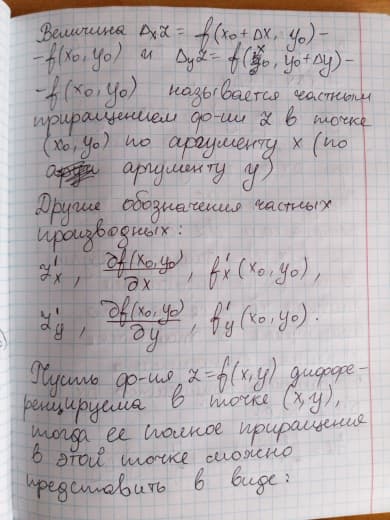 Величина Δₓz = f(x₀ + Δx, y₀) –
– f(x₀, y₀) и Δᵧz = f(x₀, y₀ + Δy) –
– f(x₀, y₀) называется частным
приращением ф-ии z в точке
(x₀, y₀) по аргументу x (по
аргументу y)
Другие обозначения частных
производных:
z'ₓ, ∂f(x₀, y₀)/∂x, f'ₓ(x₀, y₀),
z'ᵧ, ∂f(x₀, y₀)/∂y, f'ᵧ(x₀, y₀).
Пусть ф-ия z = f(x, y) диффе-
ренцируема в точке (x, y),
тогда ее полное приращения
в этой точке можно
представить в виде: